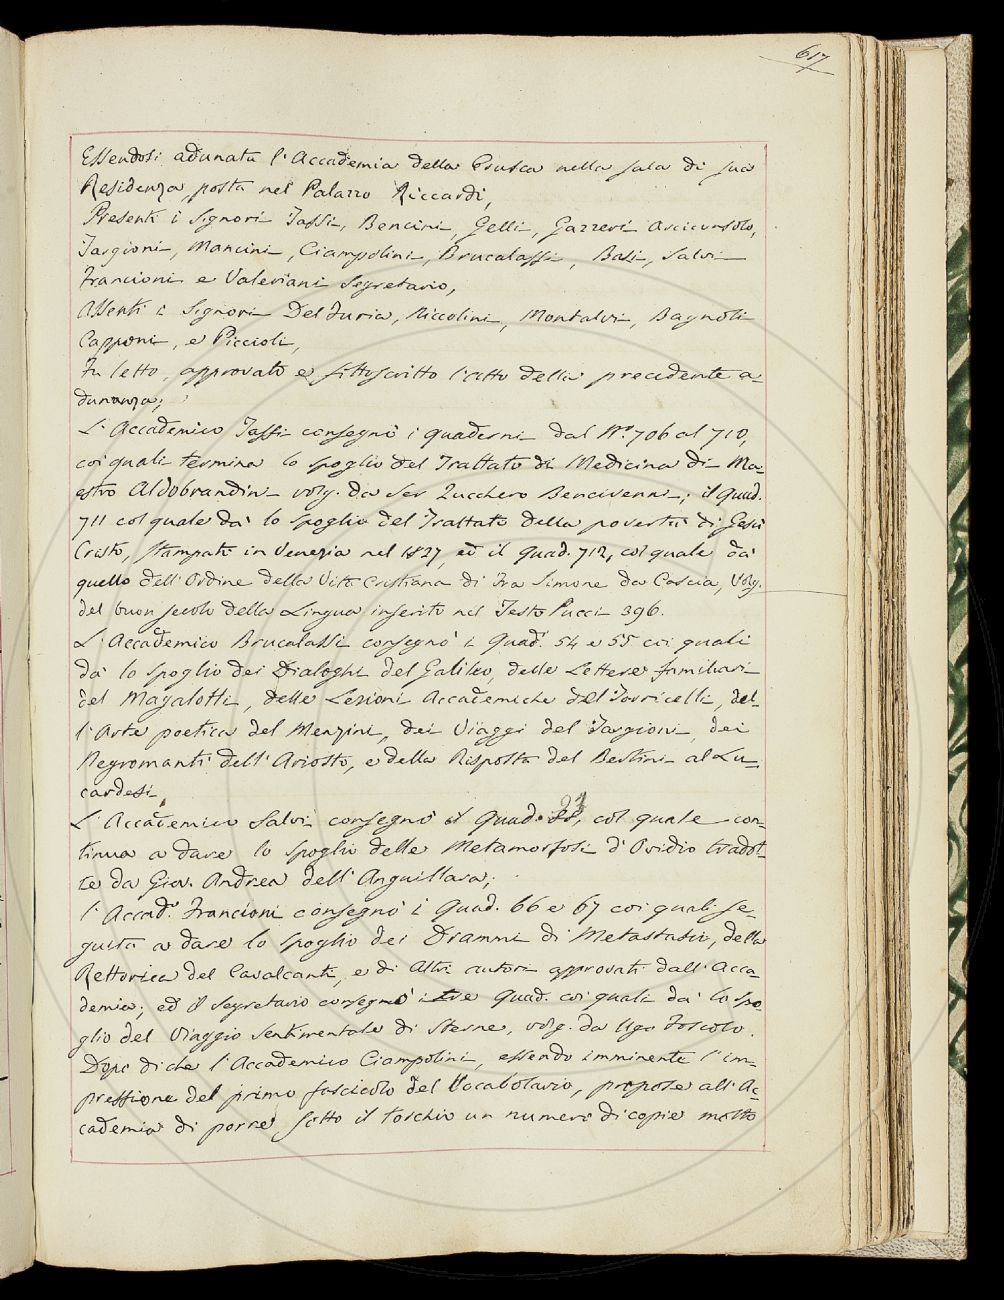 617
Essendosi adunata l'Accademia della Crusca nella sala di sua
Residenza posta nel Palazzo Riccardi,
Presenti i Signori Tassi, Bencini, Gelli, Gazzeri Arciconsolo,
Targioni, Mancini, Ciampolini, Brucalassi, Basi, Salvi
Francioni e Valeriani Segretario,
Assenti i Signori Del Furia, Niccolini, Montalvi, Bagnoli
Capponi, e Piccioli,
Fu letto, approvato e sottoscritto l'atto della precedente a-
dunanza;
L'Accademico Tassi consegnò i quaderni dal N.º 706 al 710,
coi quali termina lo spoglio del Trattato di Medicina di Ma-
estro Aldobrandini volg. da Ser Zucchero Bencivenni; il quad.
711 col quale dà lo spoglio del Trattato della povertà di Gesù
Cristo, stampato in Venezia nel 1827, ed il quad. 712, col quale dà
quello dell'Ordine della Vita Cristiana di Fra Simone da Cascia, Volg.
del buon secolo della Lingua inserito nel Testo Pucci 396.
L'Accademico Brucalassi consegnò i Quad. 54 e 55 coi quali
dà lo spoglio dei Dialoghi del Galileo, delle Lettere familiari
del Magalotti, delle Lezioni Accademiche del Torricelli, del-
l'Arte poetica del Menzini, dei Viaggi del Targioni, dei
Negromanti dell'Ariosto, e della Risposta del Bertini al Lu-
cardesi
L'Accademico Salvi consegnò il Quad. 21, col quale con-
tinua a dare lo spoglio delle Metamorfosi d'Ovidio tradot-
te da Giov. Andrea dell'Anguillara;
l'Accad.º Francioni consegnò i Quad. 66 e 67 coi quali se-
guita a dare lo spoglio dei Drammi di Metastasio, della
Rettorica del Cavalcanti, e di Altri autori approvati dall'Acca-
demia; ed il Segretario consegnò i tre Quad. coi quali dà lo spo-
glio del Viaggio sentimentale di Sterne, volg. da Ugo Foscolo.
Dopo di che l'Accademico Ciampolini, essendo imminente l'im-
pressione del primo fascicolo del Vocabolario, propose all'Ac-
cademia di porre sotto il torchio un numero di copie molto